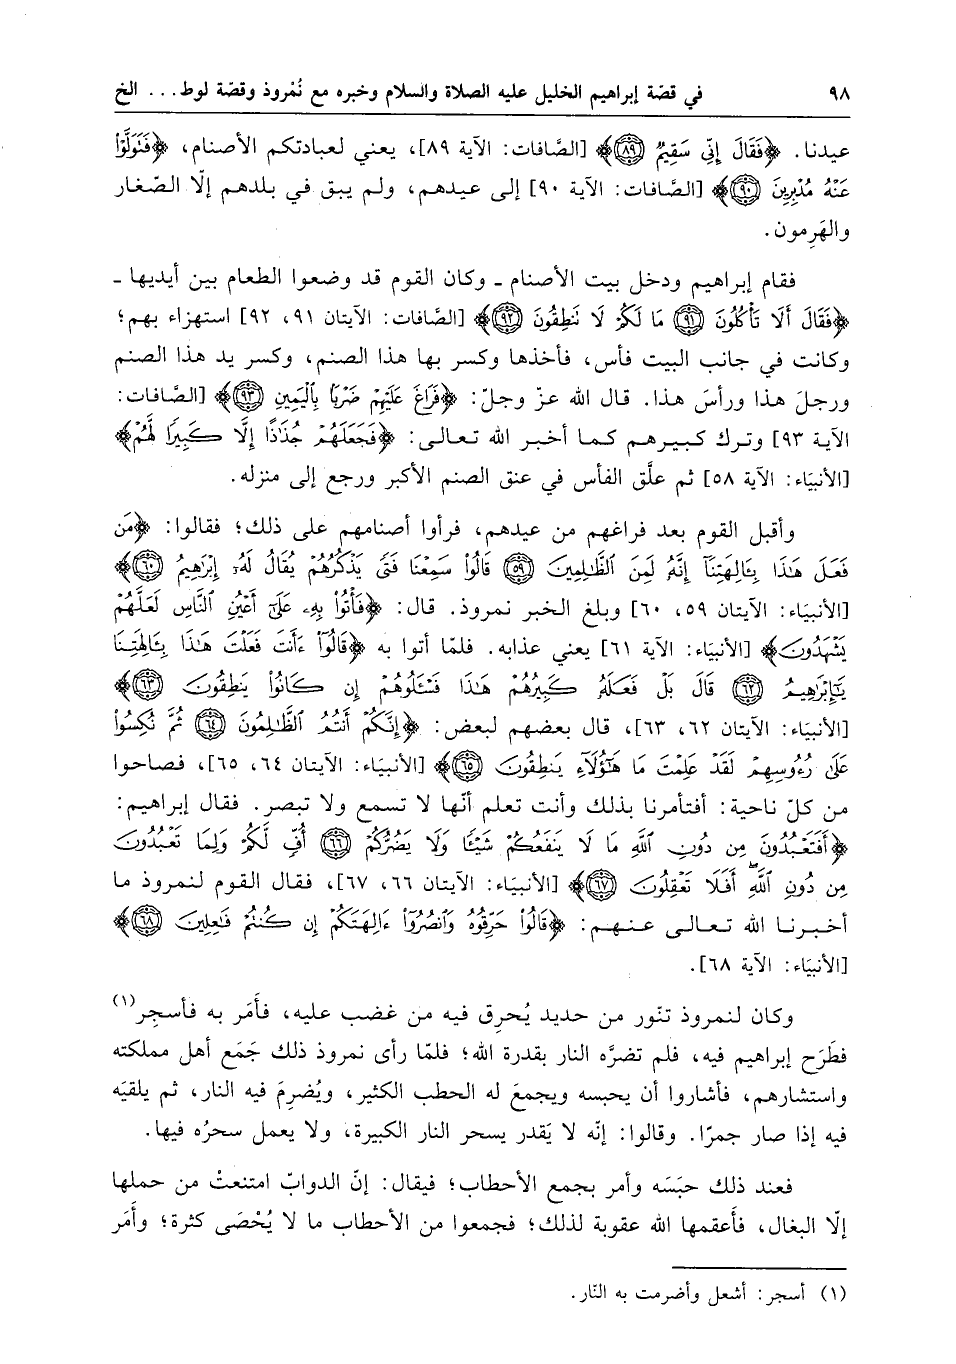 ٩٨ في قصّة إبراهيم الخليل عليه الصلاة والسلام وخبره مع نُمْروذ وقصّة لوط... الخ
عيدنا. ﴿فَقَالَ إِنِّي سَقِيمٌ ﴿٨٩﴾﴾ [الصَّافات: الآية ٨٩]، يعني لعبادتكم الأصنام، ﴿فَتَوَلَّوْا
عَنْهُ مُدْبِرِينَ ﴿٩٠﴾﴾ [الصَّافات: الآية ٩٠] إلى عيدهم، ولم يبق في بلدهم إلّا الصّغار
والهَرِمون.
فقام إبراهيم ودخل بيت الأصنام ـ وكان القوم قد وضعوا الطعام بين أيديها ـ
﴿فَقَالَ أَلَا تَأْكُلُونَ ﴿٩١﴾ مَا لَكُمْ لَا نَنطِقُونَ ﴿٩٢﴾﴾ [الصَّافات: الآيتان ٩١، ٩٢] استهزاء بهم؛
وكانت في جانب البيت فأس، فأخذها وكسر بها هذا الصنم، وكسر يد هذا الصنم
ورجلَ هذا ورأسَ هذا. قال الله عزّ وجلّ: ﴿فَرَاغَ عَلَيْهِمْ ضَرْبًا بِٱلْيَمِينِ ﴿٩٣﴾﴾ [الصافات:
الآية ٩٣] وترك كبيرهم كما أخبر الله تعالى: ﴿فَجَعَلَهُمْ جُذَٰذًا إِلَّا كَبِيرًا لَّهُمْ﴾
[الأنبيَاء: الآية ٥٨] ثم علَّق الفأس في عنق الصنم الأكبر ورجع إلى منزله.
وأقبل القوم بعد فراغهم من عيدهم، فرأوا أصنامهم على ذلك؛ فقالوا: ﴿مَن
فَعَلَ هَٰذَا بِـَٔالِهَتِنَآ إِنَّهُۥ لَمِنَ ٱلظَّٰلِمِينَ ﴿٥٩﴾ قَالُوا۟ سَمِعْنَا فَتًى يَذْكُرُهُمْ يُقَالُ لَهُۥٓ إِبْرَٰهِيمُ ﴿٦٠﴾﴾
[الأنبيَاء: الآيتان ٥٩، ٦٠] وبلغ الخبر نمروذ. قال: ﴿فَأْتُوا۟ بِهِۦ عَلَىٰٓ أَعْيُنِ ٱلنَّاسِ لَعَلَّهُمْ
يَشْهَدُونَ﴾ [الأنبيَاء: الآية ٦١] يعني عذابه. فلمّا أتوا به ﴿قَالُوٓا۟ ءَأَنتَ فَعَلْتَ هَٰذَا بِـَٔالِهَتِنَا
يَٰٓإِبْرَٰهِيمُ ﴿٦٢﴾ قَالَ بَلْ فَعَلَهُۥ كَبِيرُهُمْ هَٰذَا فَسْـَٔلُوهُمْ إِن كَانُوا۟ يَنطِقُونَ ﴿٦٣﴾﴾
[الأنبيَاء: الآيتان ٦٢، ٦٣]، قال بعضهم لبعض: ﴿إِنَّكُمْ أَنتُمُ ٱلظَّٰلِمُونَ ﴿٦٤﴾ ثُمَّ نُكِسُوا۟
عَلَىٰ رُءُوسِهِمْ لَقَدْ عَلِمْتَ مَا هَٰٓؤُلَآءِ يَنطِقُونَ ﴿٦٥﴾﴾ [الأنبيَاء: الآيتان ٦٤، ٦٥]، فصاحوا
من كلّ ناحية: أفتأمرنا بذلك وأنت تعلم أنّها لا تسمع ولا تبصر. فقال إبراهيم:
﴿أَفَتَعْبُدُونَ مِن دُونِ ٱللَّهِ مَا لَا يَنفَعُكُمْ شَيْـًٔا وَلَا يَضُرُّكُمْ ﴿٦٦﴾ أُفٍّ لَّكُمْ وَلِمَا تَعْبُدُونَ
مِن دُونِ ٱللَّهِ ۖ أَفَلَا تَعْقِلُونَ ﴿٦٧﴾﴾ [الأنبيَاء: الآيتان ٦٦، ٦٧]، فقال القوم لنمروذ ما
أخبرنا الله تعالى عنهم: ﴿قَالُوا۟ حَرِّقُوهُ وَٱنصُرُوٓا۟ ءَالِهَتَكُمْ إِن كُنتُمْ فَٰعِلِينَ ﴿٦٨﴾﴾
[الأنبيَاء: الآية ٦٨].
وكان لنمروذ تنّور من حديد يُحرِق فيه من غضب عليه، فأَمَر به فأسجِر(١)
فطَرَح إبراهيم فيه، فلم تضرَّه النار بقدرة الله؛ فلمّا رأى نمروذ ذلك جَمَع أهل مملكته
واستشارهم، فأشاروا أن يحبسه ويجمعَ له الحطب الكثير، ويُضرِمَ فيه النار، ثم يلقيَه
فيه إذا صار جمرًا. وقالوا: إنّه لا يَقدر يسحر النار الكبيرة، ولا يعمل سحرُه فيها.
فعند ذلك حبَسَه وأمر بجمع الأحطاب؛ فيقال: إنّ الدوابّ امتنعتْ من حملها
إلّا البغال، فأَعقمها الله عقوبة لذلك؛ فجمعوا من الأحطاب ما لا يُحْصَى كثرة؛ وأَمَر
(١) أسجر: أشعل وأضرمت به النّار.